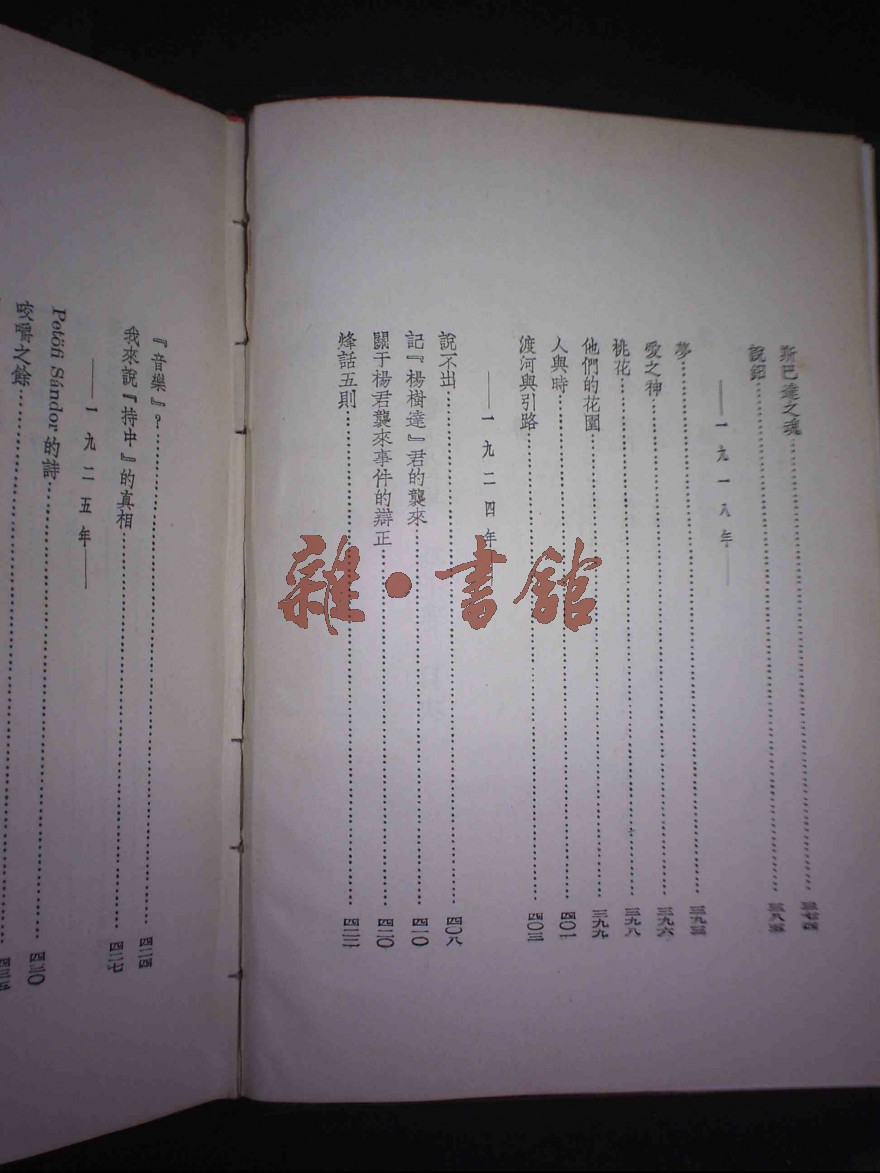 斯巴達之魂……三七四
說鈤……三八五
——一九一八年——
夢……三九五
愛之神……三九六
桃花……三九八
他們的花園……三九九
人與時……四〇一
渡河與引路……四〇三
——一九二四年——
說不出……四〇八
記『楊樹達』君的襲來……四一〇
關于楊君襲來事件的辯正……四二〇
烽話五則……四二二
『音樂』？……四二四
我來說『持中』的真相……四二七
——一九二五年——
Petöfi Sándor 的詩……四三〇
咬嚼之餘……四三五
雜·書館